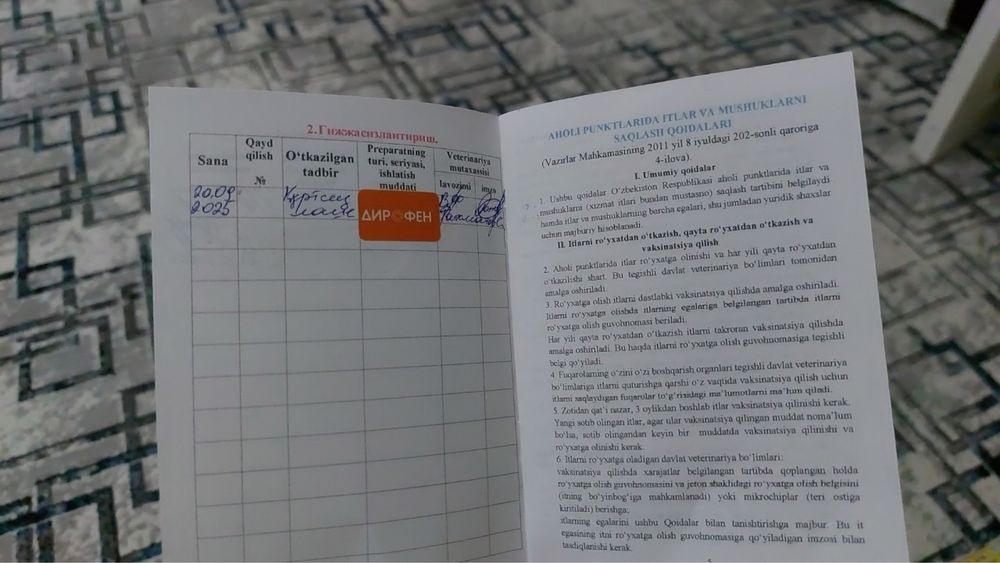 2. Гижжасизлантириш.
Sana
Qayd qilish №
O‘tkazilgan tadbir
Preparatning turi, seriyasi, ishlatish muddati
Veterinariya mutaxassisi
lavozimi
imzo
20.09
2025
ДИРОФЕН
AHOLI PUNKTLARIDA ITLAR VA MUSHUKLARNI
SAQLASH QOIDALARI
(Vazirlar Mahkamasining 2011 yil 8 iyuldagi 202-sonli qaroriga
4-ilova).
I. Umumiy qoidalar
1. Ushbu qoidalar O‘zbekiston Respublikasi aholi punktlarida itlar va
mushuklarni (xizmat itlari bundan mustasno) saqlash tartibini belgilaydi
hamda itlar va mushuklarning barcha egalari, shu jumladan yuridik shaxslar
uchun majburiy hisoblanadi.
II. Itlarni ro‘yxatdan o‘tkazish, qayta ro‘yxatdan o‘tkazish va
vaksinatsiya qilish
2. Aholi punktlarida itlar ro‘yxatga olinishi va har yili qayta ro‘yxatdan
o‘tkazilishi shart. Bu tegishli davlat veterinariya bo‘limlari tomonidan
amalga oshiriladi.
3. Ro‘yxatga olish itlarni dastlabki vaksinatsiya qilishda amalga oshiriladi.
Itlarni ro‘yxatga olishda itlarning egalariga belgilangan tartibda itlarni
ro‘yxatga olish guvohnomasi beriladi.
Har yili qayta ro‘yxatdan o‘tkazish itlarni takroran vaksinatsiya qilishda
amalga oshiriladi. Bu haqda itlarni ro‘yxatga olish guvohnomasiga tegishli
belgi qo‘yiladi.
4 Fuqarolarning o‘zini o‘zi boshqarish organlari tegishli davlat veterinariya
bo‘limlariga itlarni quturishga qarshi o‘z vaqtida vaksinatsiya qilish uchun
itlarni saqlaydigan fuqarolar to‘g‘risidagi ma’lumotlarni ma’lum qiladi.
5. Zotidan qat’i nazar, 3 oylikdan boshlab itlar vaksinatsiya qilinishi kerak.
Yangi sotib olingan itlar, agar ular vaksinatsiya qilingan muddat noma’lum
bo‘lsa, sotib olingandan keyin bir muddatda vaksinatsiya qilinishi va
ro‘yxatga olinishi kerak.
6. Itlarni ro‘yxatga oladigan davlat veterinariya bo‘limlari:
vaksinatsiya qilishda xarajatlar belgilangan tartibda qoplangan holda
ro‘yxatga olish guvohnomasini va jeton shaklidagi ro‘yxatga olish belgisini
(itning bo‘yinbog‘iga mahkamlanadi) yoki mikrochiplar (teri ostiga
kiritiladi) berishga;
itlarning egalarini ushbu Qoidalar bilan tanishtirishga majbur. Bu it
egasining itni ro‘yxatga olish guvohnomasiga qo‘yiladigan imzosi bilan
tasdiqlanishi kerak.